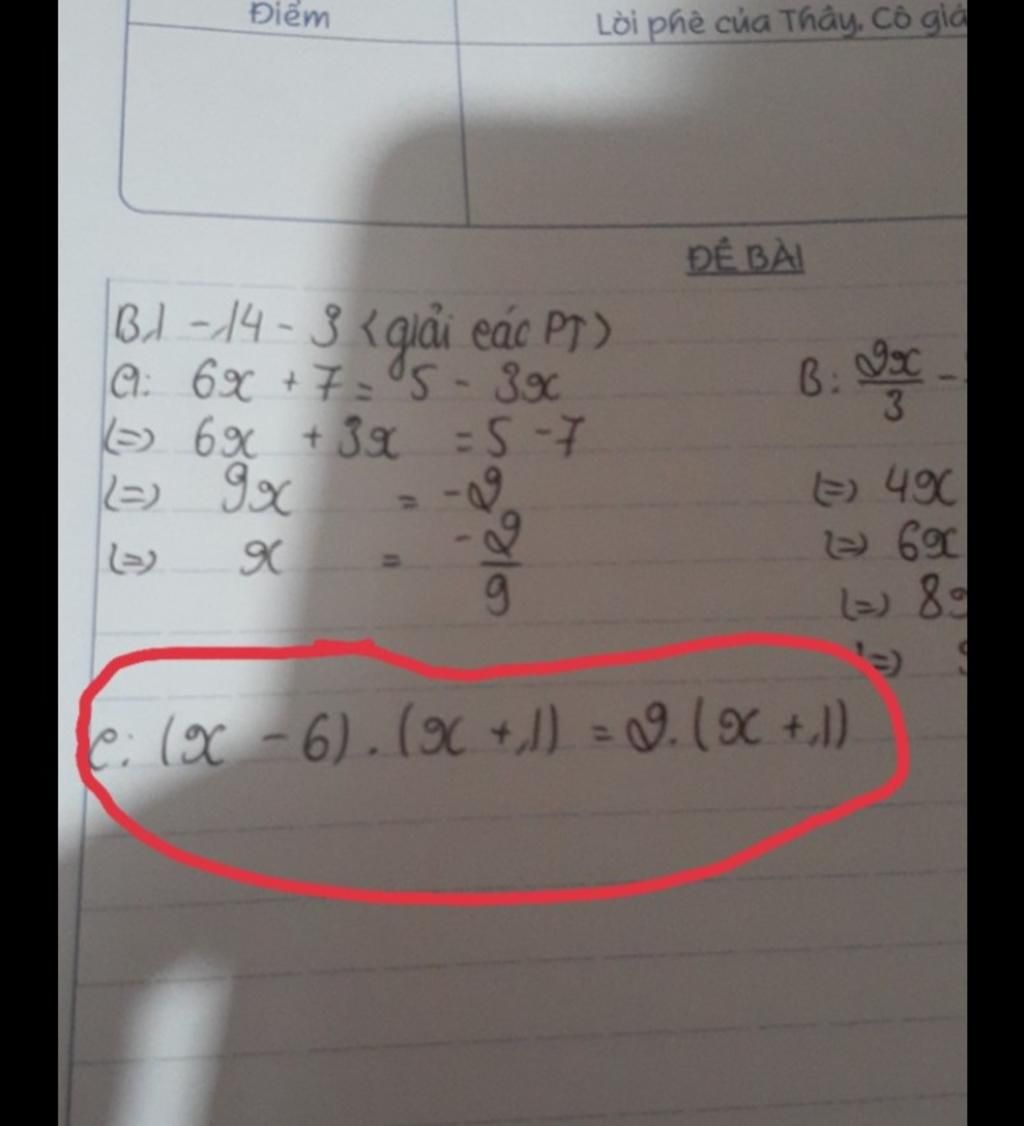 Điểm
Lời phê của Thầy, Cô giá
ĐỀ BÀI
B.1 - 14 - 3 <giải các PT>
a: 6x + 7 = 5 - 3x
(=) 6x + 3x = 5 - 7
(=) 9x = -2
(=) x = -2/9
B: 2x/3 -
(=) 4x
(=) 6x
(=) 8
(=)
c: (x - 6) . (x + 1) = 2. (x + 1)